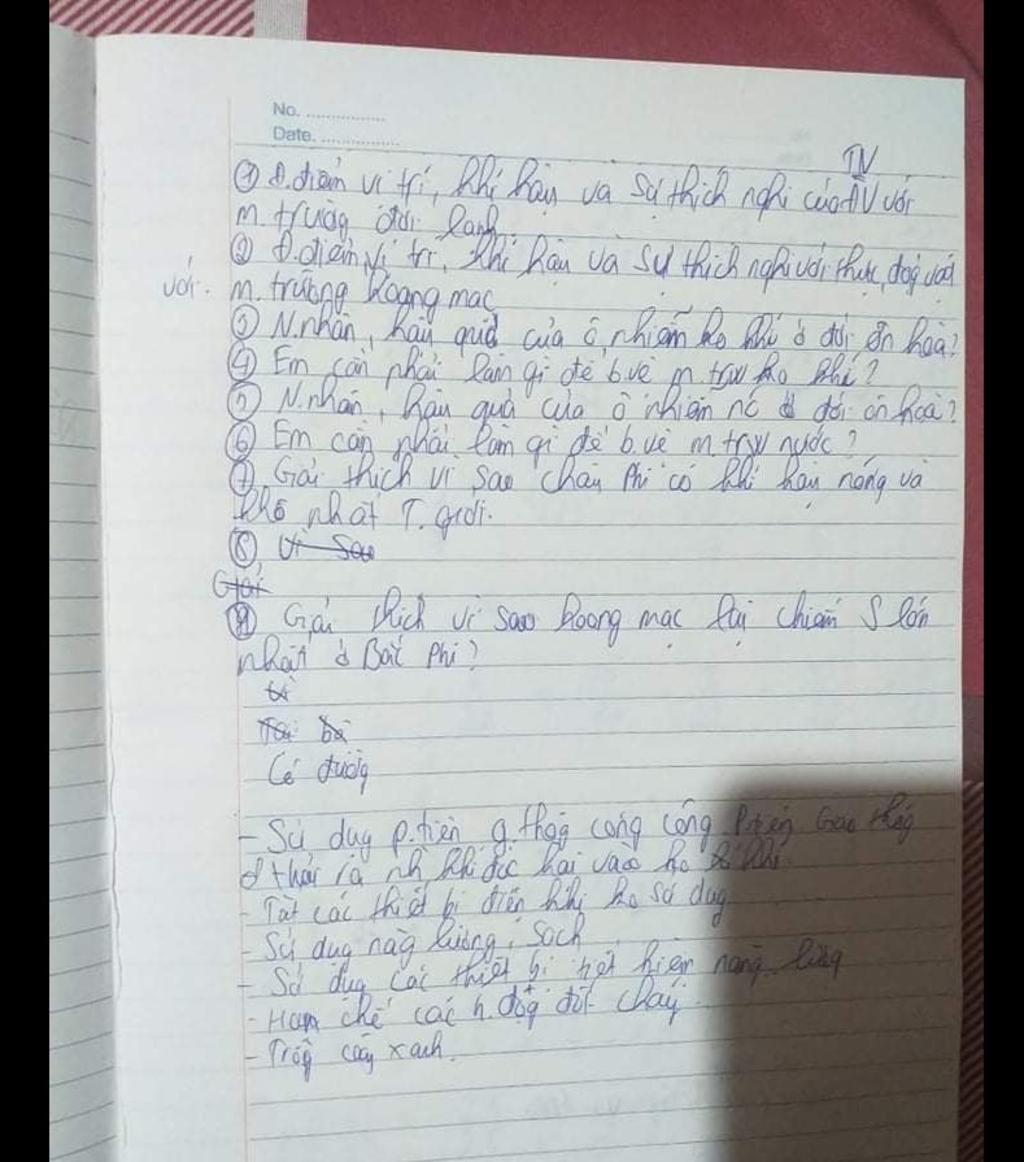 No. ................
Date. ................
TV
① Đ.điểm vị trí, khí hậu và sự thích nghi của ĐV với
m.trường đới lạnh
② Đ.điểm vị trí, khí hậu và sự thích nghi với thực, độg vật
với. m.trường hoang mạc
③ N.nhân, hậu quả của ô nhiễm ko khí ở đới ôn hoà?
④ Em cần phải làm gì để b.vệ m.trg ko khí?
⑤ N.nhân, hậu quả của ô nhiễm nc ở đới ôn hoà?
⑥ Em cần phải làm gì để b.vệ m.trg nước?
⑦ Giải thích vì sao châu Phi có khí hậu nóng và
khô nhất T.giới.
⑧ Vì sao
Giải
Giải thích vì sao hoang mạc lại chiếm S lớn
nhất ở Bắc Phi?
vì
Tại
Có đường
- Sử dụg p.tiện g.thôg công cộng. P.tiện Giao thôg
thải ra nh khí độc hại vào ko khí
- Tắt các thiết bị điện khi ko sử dụg
- Sử dụg năg lượng sạch
- Sử dụg các thiết bị tiết kiệm năng lượg
- Hạn chế các h.độg đốt cháy
- Trồg cây xanh.